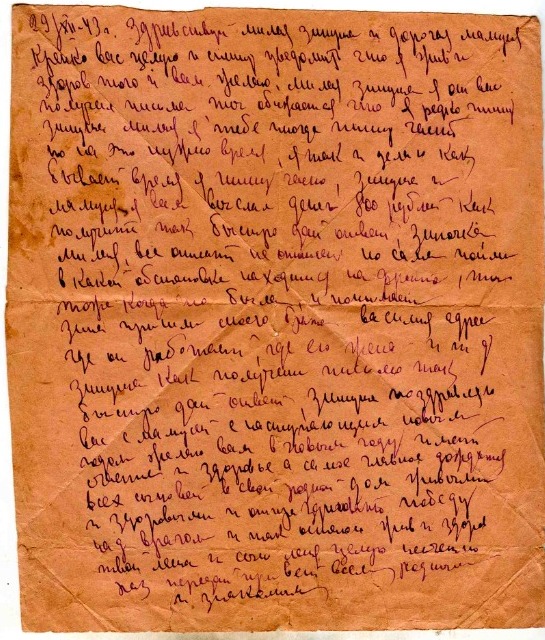 29/XII-43 г. Здравствуй милая Зинуша и дорогая мамуся
Крепко вас целую и спешу уведомить что я жив и
здоров того и вам желаю, милая Зинуша я от вас
получил письма ты обижаешся что я редко пишу
Зинуша милая я тебе иногда пишу часто
но на это нужно время, я так и делаю как
бывает время я пишу часто, Зинуша и
мамуся я вам выслал денег 800 рублей как
получите так быстро дай ответ, Зиночка
милая, все описать не опишешь но сама пойми
в какой обстановке находишся на фронте, ты
тоже когда то была и понимаеш
Зина пришли своего брата Василия адрес
где он работает где его жена и т д
Зинуша как получиш письмо так
быстро дай ответ, Зинуша поздравляю
вас с мамусей с наступающим новым
годом желаю вам в новом году иметь
счастье и здоровье а самое главное дождатся
всех сыновей в свой родной дом живыми
и здоровыми и одержать победу
над врагом и так остаюсь жив и здоров
твой Леня и сто раз целую
раз передай привет всем родным
и знакомым